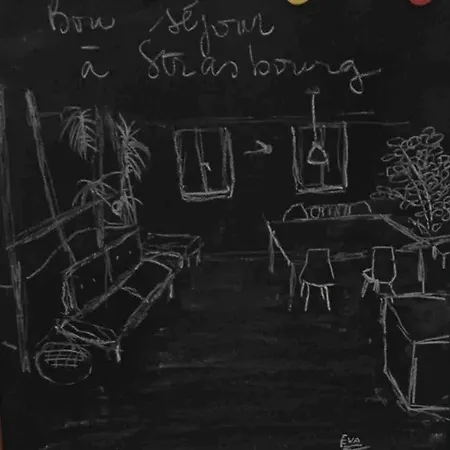 Bon séjour
à Strasbourg
Eva